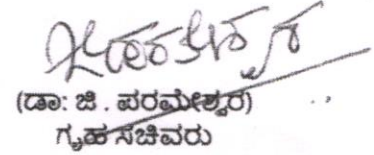 (ಡಾ: ಜಿ . ಪರಮೇಶ್ವರ)
ಗೃಹ ಸಚಿವರು